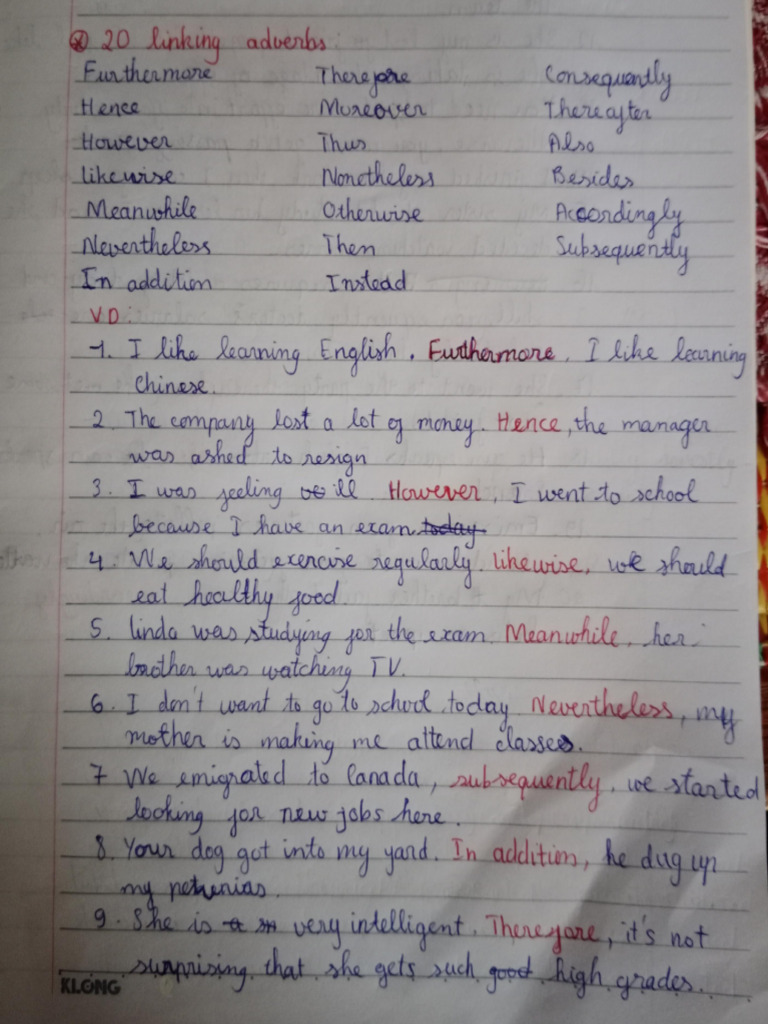 20 linking adverbs
Furthermore Therefore Consequently
Hence Moreover Thereafter
However Thus Also
likewise Nonetheless Besides
Meanwhile Otherwise Accordingly
Nevertheless Then Subsequently
In addition Instead
VD:
1. I like learning English. Furthermore, I like learning
Chinese.
2. The company lost a lot of money. Hence, the manager
was asked to resign
3. I was feeling ill. However, I went to school
because I have an exam today.
4. We should exercise regularly likewise, we should
eat healthy food.
5. linda was studying for the exam. Meanwhile, her
brother was watching TV.
6. I don't want to go to school today Nevertheless, my
mother is making me attend classes.
7 We emigrated to Canada, subsequently, we started
looking for new jobs here.
8. Your dog got into my yard. In addition, he dug up
my petunias.
9. She is a very intelligent. Therefore, it's not
surprising that she gets such good high grades.
KLONG